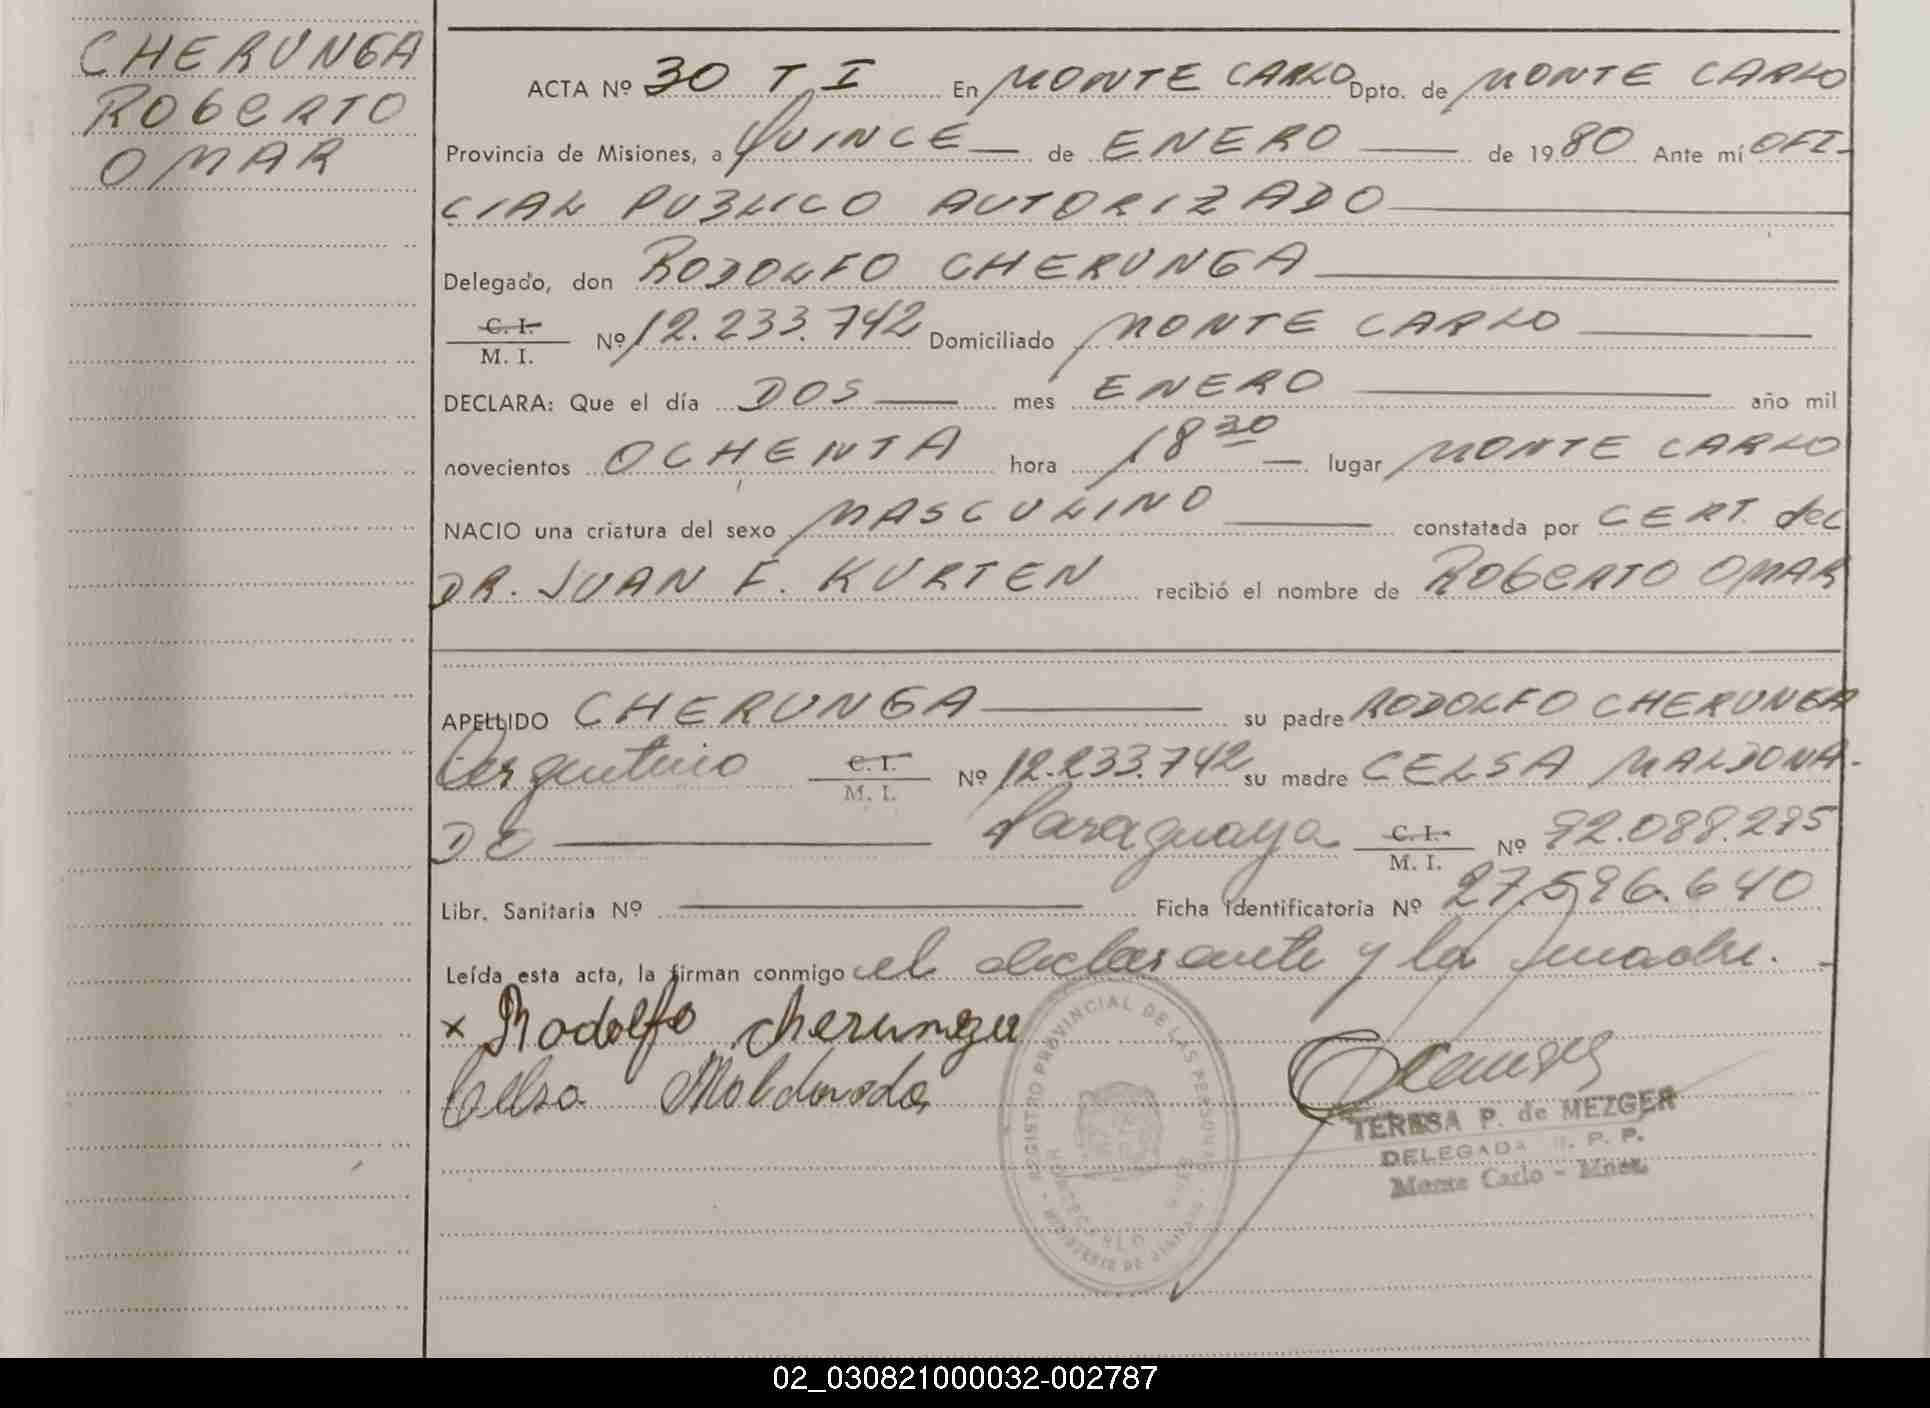 CHERUNGA
ROBERTO
OMAR
ACTA Nº 30 T I En MONTE CARLO Dpto. de MONTE CARLO
Provincia de Misiones, a QUINCE de ENERO de 1980 Ante mí OFI-
CIAL PUBLICO AUTORIZADO
Delegado, don RODOLFO CHERUNGA
C. I.
M. I. Nº 12.233.742 Domiciliado MONTE CARLO
DECLARA: Que el día DOS mes ENERO año mil
novecientos OCHENTA hora 18 30 lugar MONTE CARLO
NACIO una criatura del sexo MASCULINO constatada por CERT. del
DR. JUAN F. KURTEN recibió el nombre de ROBERTO OMAR
APELLIDO CHERUNGA su padre RODOLFO CHERUNGA
Argentino C. I.
M. I. Nº 12.233.742 su madre CELSA MALDONA-
DO Paraguaya C. I.
M. I. Nº 92.088.295
Libr. Sanitaria Nº Ficha Identificatoria Nº 27.596.640
Leída esta acta, la firman conmigo el declarante y la madre.
x Rodolfo Cherunga
Celsa Maldonado
REGISTRO PROVINCIAL DE LAS PERSONAS
MONTECARLO
MINISTERIO DE
TERESA P. de MEZGER
DELEGADA R. P. P.
Monte Carlo - Mnes.
02_030821000032-002787